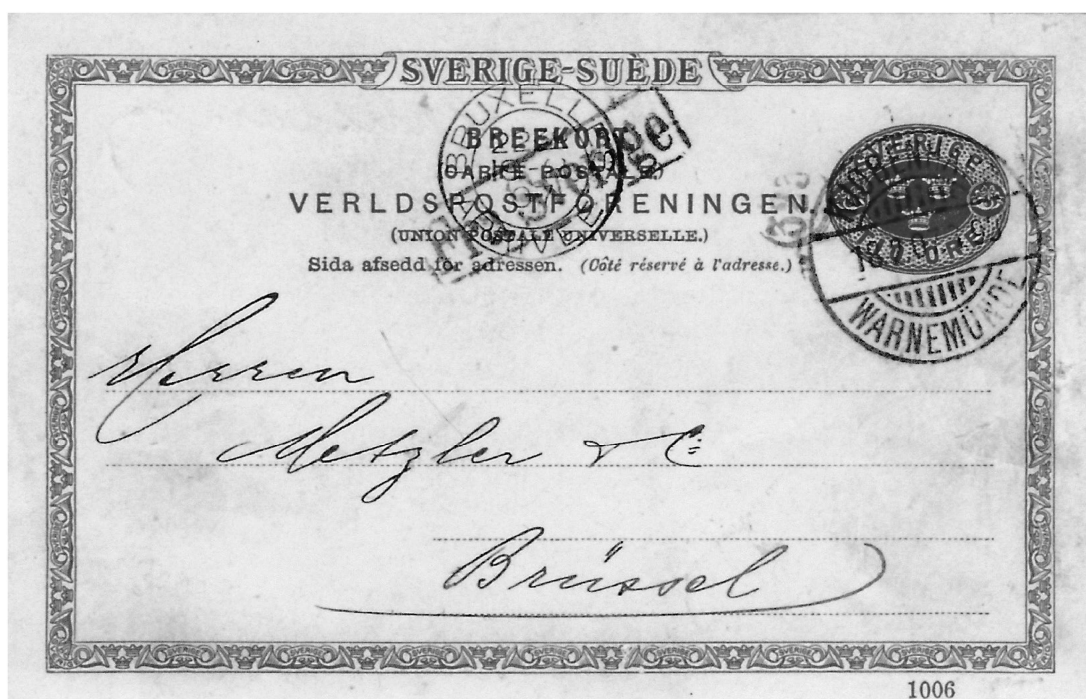 SVERIGE-SUÈDE
BREFKORT
(CARTE POSTALE)
VERLDSPOSTFÖRENINGEN.
(UNION POSTALE UNIVERSELLE.)
Sida afsedd för adressen. (Côté réservé à l'adresse.)
BRUXELLES
Fr. Sverige
WARNEMÜNDE
Herren
Metzler & C:
Brüssel
1006